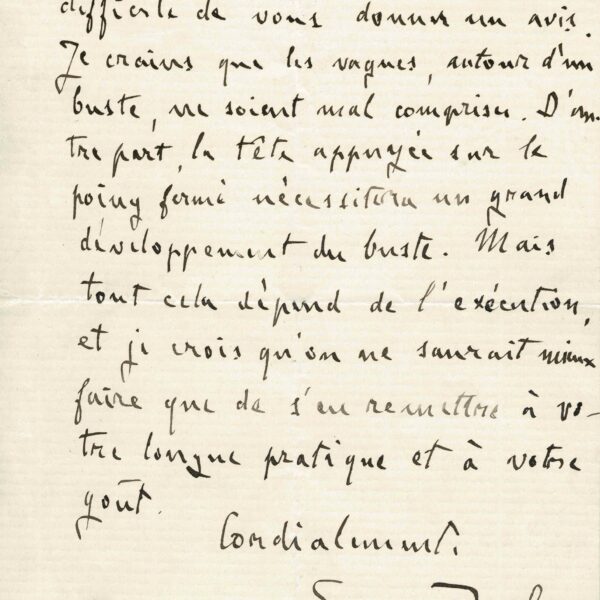 difficile de vous donner un avis.
Je crains que les vagues, autour d'un
buste, ne soient mal comprises. D'au-
tre part, la tête appuyée sur le
poing fermé nécessitera un grand
développement du buste. Mais
tout cela dépend de l'exécution,
et je crois qu'on ne saurait mieux
faire que de s'en remettre à vo-
tre longue pratique et à votre
goût.
Cordialement.